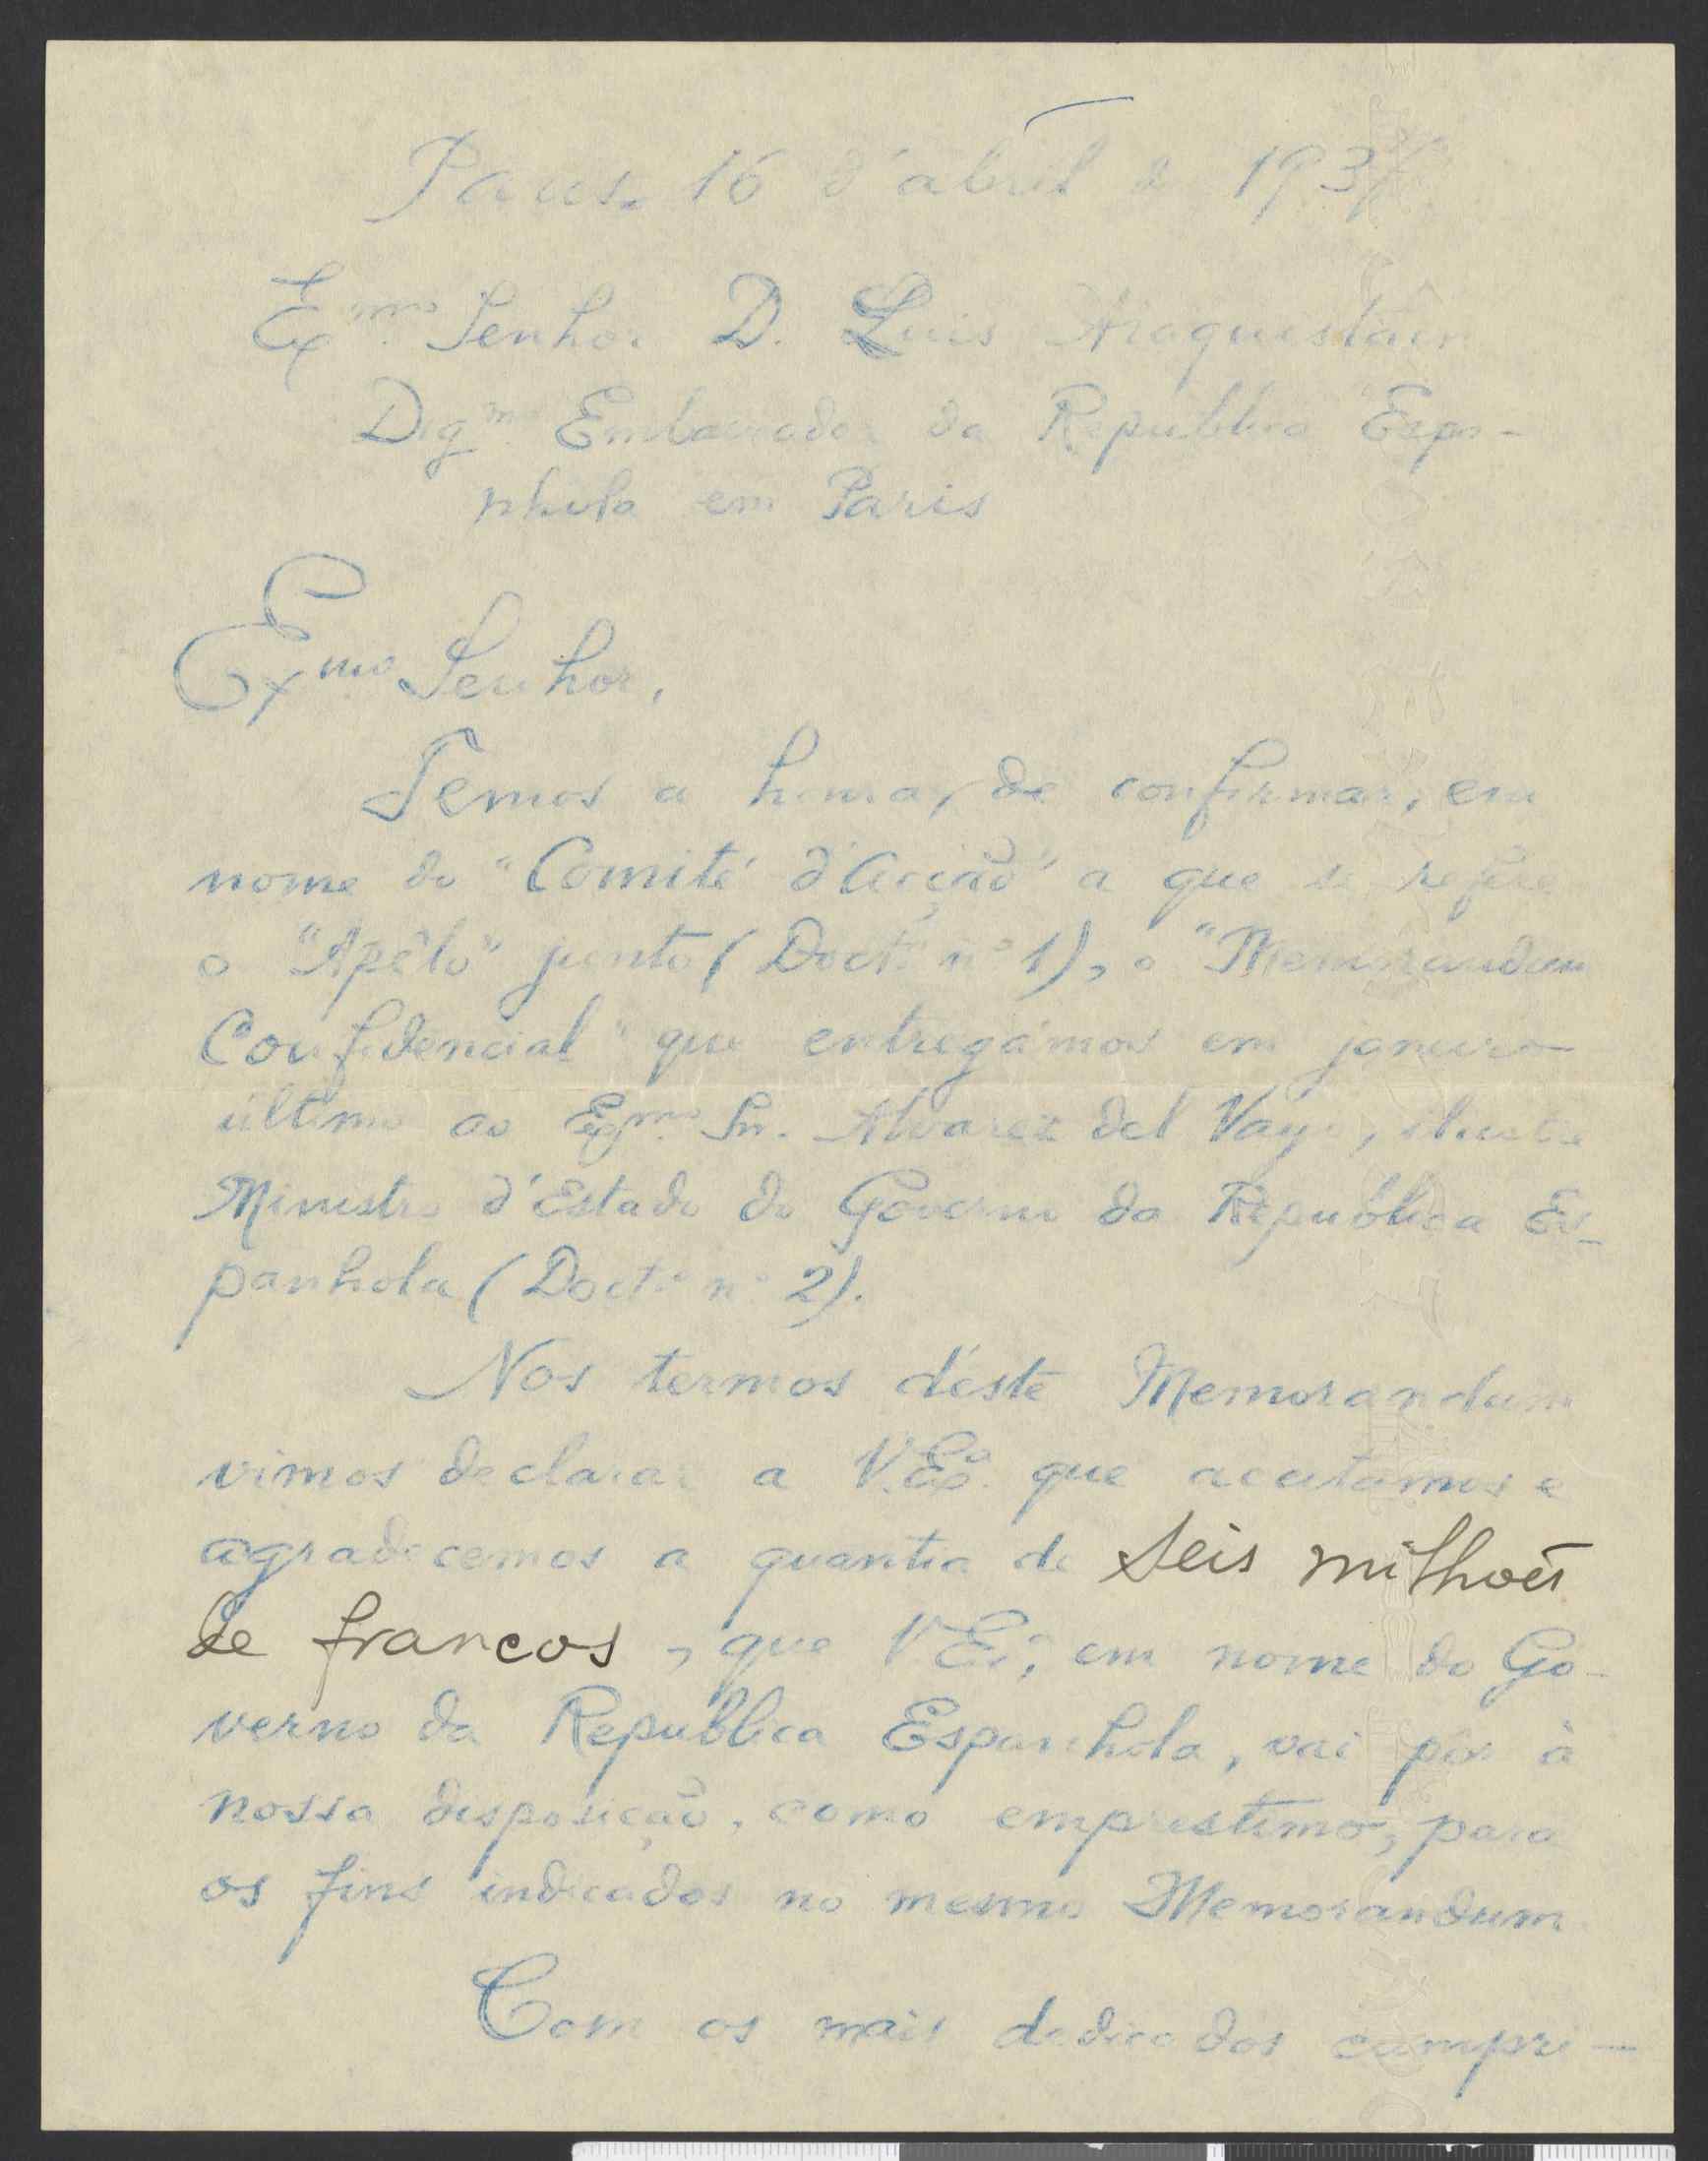 Paris, 16 d'abril de 1937
Exmo. Senhor D. Luis Araquistain
Digmo. Embaixador da Republica Espa-
nhola em Paris
Exmo Senhor,
Temos a honra, de confirmar, em
nome do "Comité d'Acção" a que se refere
o "Apêlo" junto (Docto nº 1), o "Memorandum
Confidencial" que entregámos em janeiro
último ao Exmo. Sr. Alvarez del Vayo, ilustre
Ministro d'Estado do Governo da República Es-
panhola (Docto nº 2).
Nos termos dêste Memorandum
vimos declarar a V. Exa. que aceitamos e
agradecemos a quantia de seis milhões
de francos, que V. Exa, em nome do Go-
verno da Republica Espanhola, vai pôr à
nossa disposição, como emprestimo, para
os fins indicados no mesmo Memorandum
Com os mais dedicados cumpri-